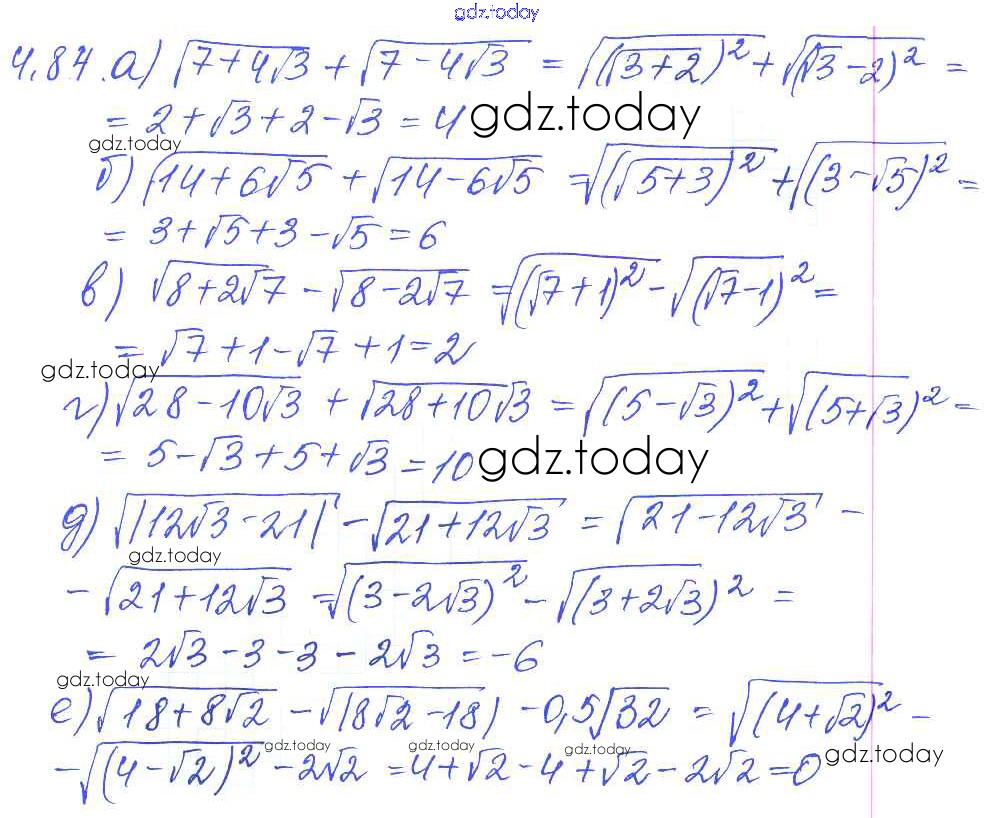 gdz.today
4.84. а) √(7+4√3) + √(7-4√3) = √((√3+2)²) + √((√3-2)²) =
= 2+√3+2-√3 = 4 gdz.today
gdz.today
б) √(14+6√5) + √(14-6√5) = √((√5+3)²) + √((3-√5)²) =
= 3+√5+3-√5 = 6
в) √(8+2√7) - √(8-2√7) = √((√7+1)²) - √((√7-1)²) =
= √7+1-√7+1=2
gdz.today
г) √(28-10√3) + √(28+10√3) = √((5-√3)²) + √((5+√3)²) =
= 5-√3+5+√3 = 10 gdz.today
д) √|12√3-21| - √(21+12√3) = √(21-12√3) -
gdz.today
- √(21+12√3) = √((3-2√3)²) - √((3+2√3)²) =
= 2√3-3-3-2√3 = -6
gdz.today
е) √(18+8√2) - √(|8√2-18|) - 0,5√32 = √((4+√2)²) -
gdz.today gdz.today gdz.today gdz.today
- √((4-√2)²) - 2√2 = 4+√2-4+√2-2√2=0